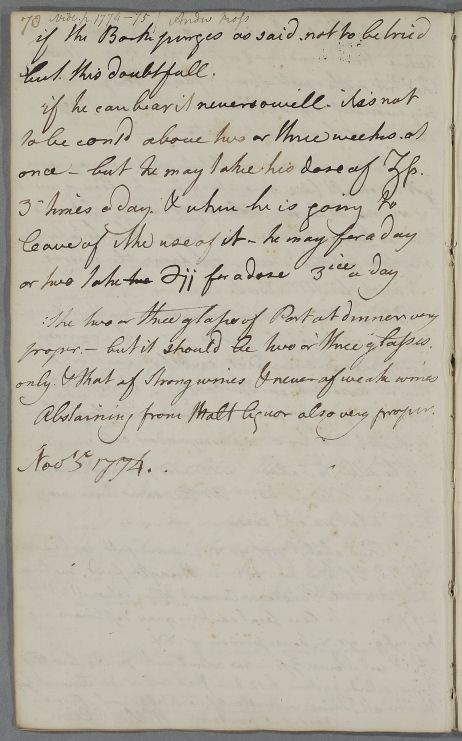 78 Vide p. 1774-75 Andw Ross
if the Bark purges as said. not to be tried
but this doubtfull.
if he can bear it never so well. it is not
to be contd above two or three weeks. at
once - but he may take his dose of ʒſs.
3 times a day. & when he is going to
leave of the use of it - he may for a day
or two take ℈ij for a dose 3ice a day
The two or three glasses of Port at dinner very
proper. - but it should be two or three glasses.
only. & that of strong wines & never of weak wines
Abstaining from Malt liquor also very proper.
Novr 5 1774.